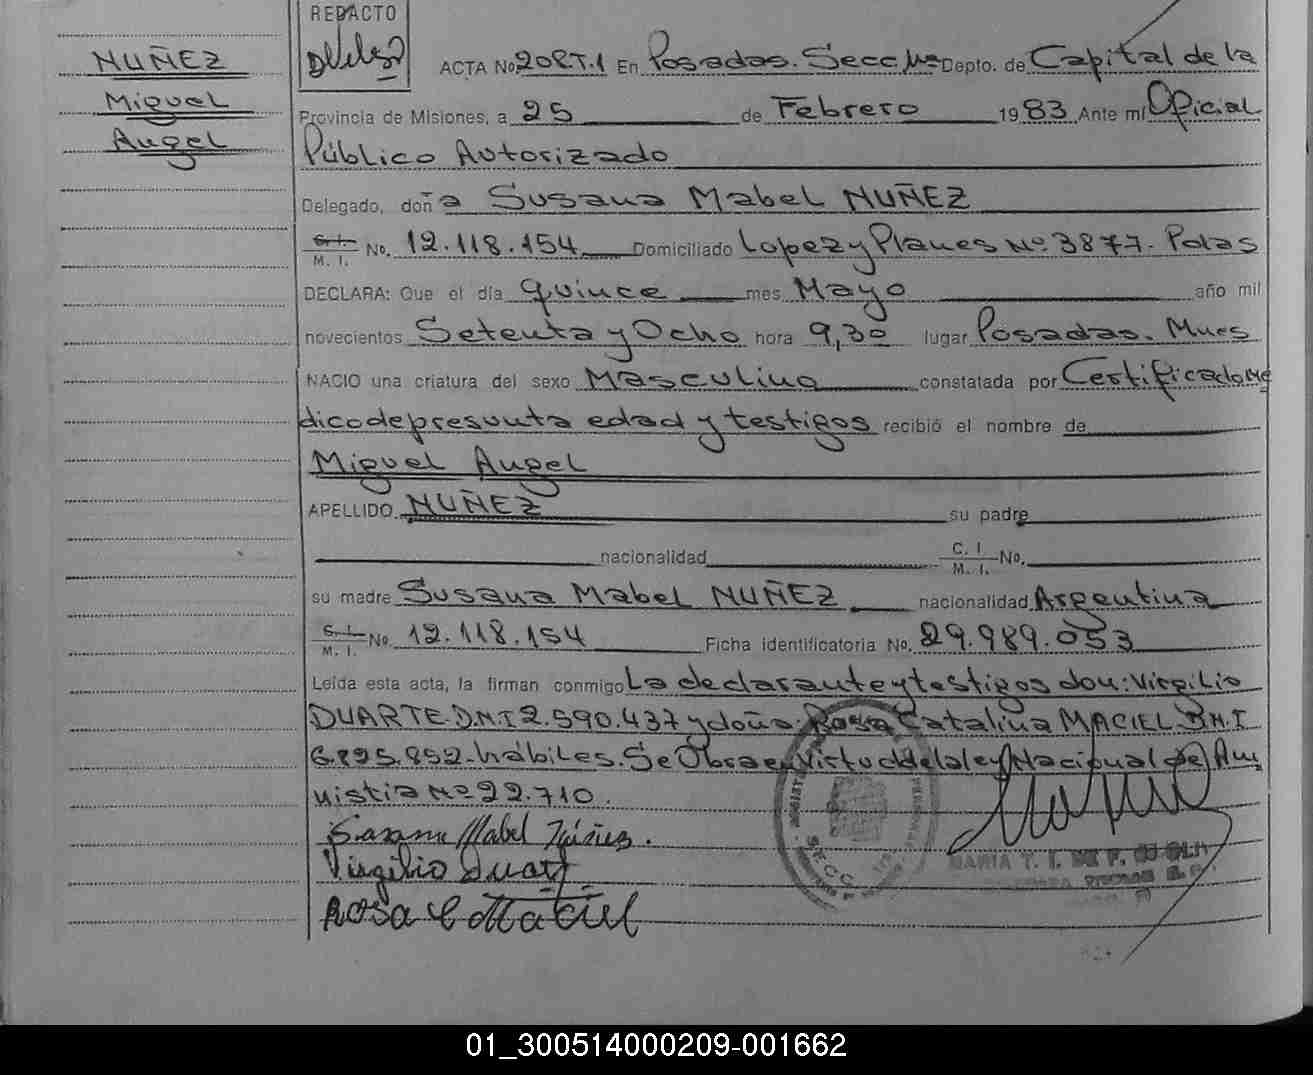 NUÑEZ
Miguel
Angel
REDACTO
ACTA No 208 T.1 En Posadas. Secc 1ra Depto. de Capital de la
Provincia de Misiones, a 25 de Febrero 1983 Ante mi Oficial
Público Autorizado
Delegado, doña Susana Mabel NUÑEZ
C. I. M. I. No. 12.118.154 Domiciliado Lopez y Planes Nº 3877. Pdas
DECLARA: Que el día quince mes Mayo año mil
novecientos Setenta y Ocho hora 9,30 lugar Posadas. Mnes
NACIO una criatura del sexo Masculino constatada por Certificado Mé
dico de presunta edad y testigos recibió el nombre de
Miguel Angel
APELLIDO NUÑEZ su padre
nacionalidad C. I. M. I. No.
su madre Susana Mabel NUÑEZ nacionalidad Argentina
C. I. M. I. No. 12.118.154 Ficha identificatoria No. 29.989.053
Leída esta acta, la firman conmigo La declarante y testigos don: Virgilio
DUARTE. D.N.I 2.590.437 y doña: Rosa Catalina MACIEL. D.N.I
6.895.852 - hábiles. Se Obra en Virtud de la ley Nacional de Am
nistia Nº 22.710.
Susana Mabel Núñez.
Virgilio Duart
ROSA C MACIEL
MARIA T. I. DE F.
01_300514000209-001662